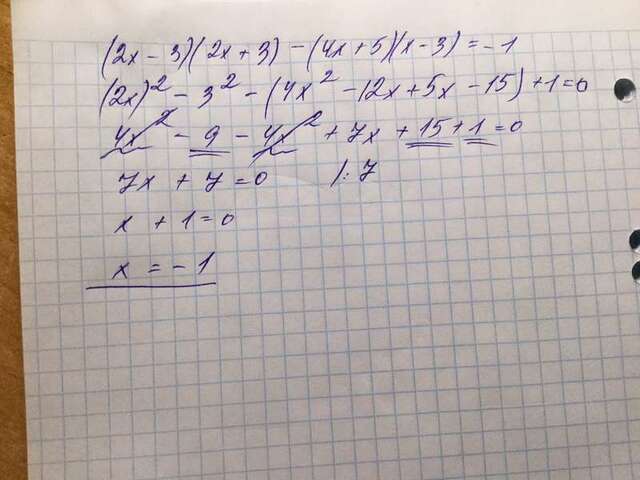 (2x - 3)(2x + 3) - (4x + 5)(x - 3) = - 1
(2x)² - 3² - (4x² - 12x + 5x - 15) + 1 = 0
4x² - 9 - 4x² + 7x + 15 + 1 = 0
7x + 7 = 0 /: 7
x + 1 = 0
x = - 1